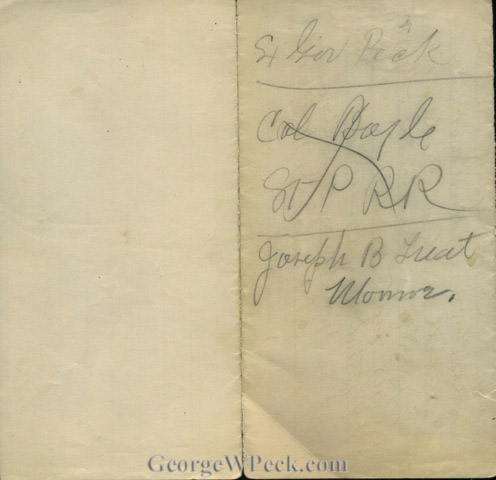 Gov Peck
Col
St P RR
Joseph B Treat
Monroe.
GeorgeWPeck.com